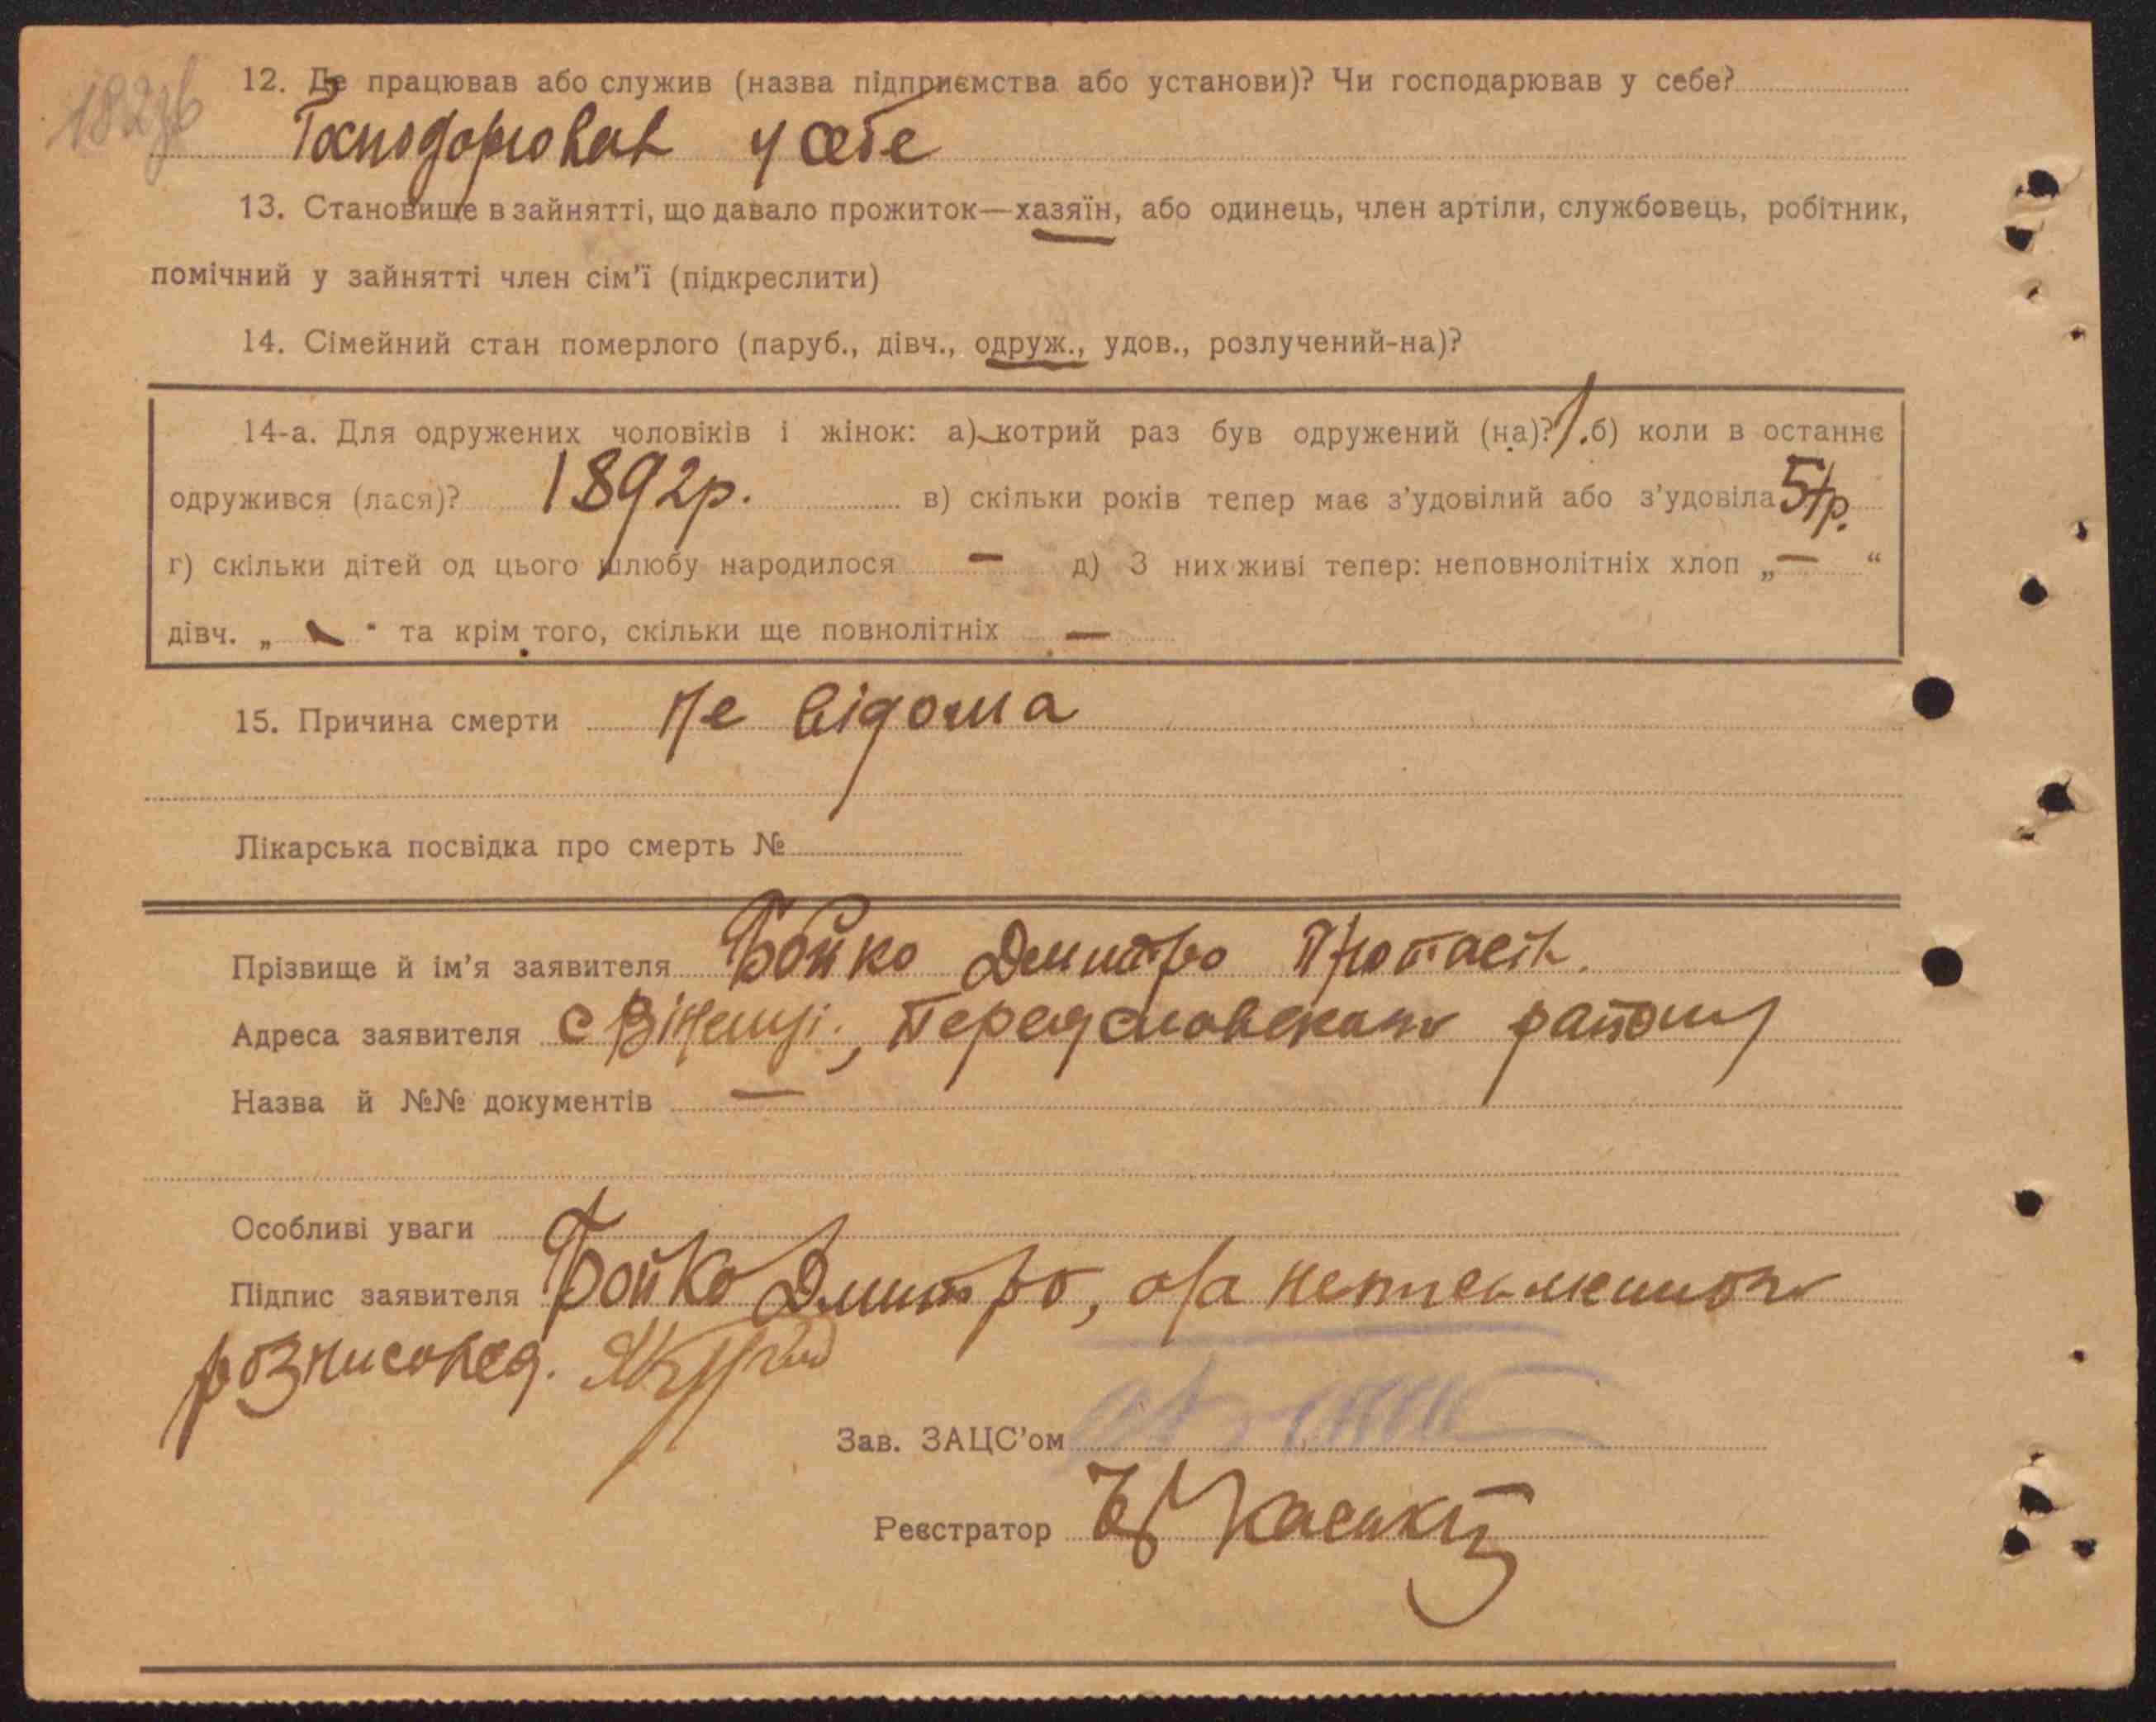 182зв
12. Де працював або служив (назва підприємства або установи)? Чи господарював у себе?
Господорював у себе
13. Становище в зайнятті, що давало прожиток—хазяїн, або одинець, член артіли, службовець, робітник,
помічний у зайнятті член сім'ї (підкреслити)
14. Сімейний стан померлого (паруб., дівч., одруж., удов., розлучений-на)?
14-а. Для одружених чоловіків і жінок: а) котрий раз був одружений (на)? 1. б) коли в останнє
одружився (лася)? 1892р. в) скільки років тепер має з'удовілий або з'удовіла 57р.
г) скільки дітей од цього шлюбу народилося — д) З них живі тепер: неповнолітніх хлоп „ — “
дівч. „ — “ та крім того, скільки ще повнолітніх —
15. Причина смерти Не відома
Лікарська посвідка про смерть №
Прізвище й ім'я заявителя Бойко Дмитро
Адреса заявителя с Віненці, Переяславського району
Назва й №№ документів —
Особливі уваги
Підпис заявителя Бойко Дмитро, а/за неписьменного
розписовсяд.
Зав. ЗАЦС'ом
Реєстратор